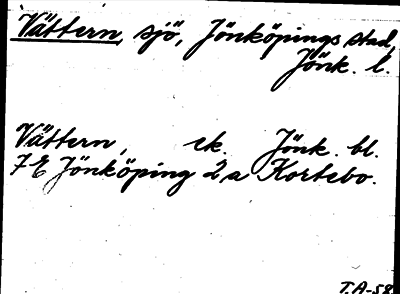 Vättern, sjö, Jönköpings stad,
Jönk. l.
Vättern, ek. Jönk. bl.
7 E Jönköping 2 a Kortebo.
T.A-58